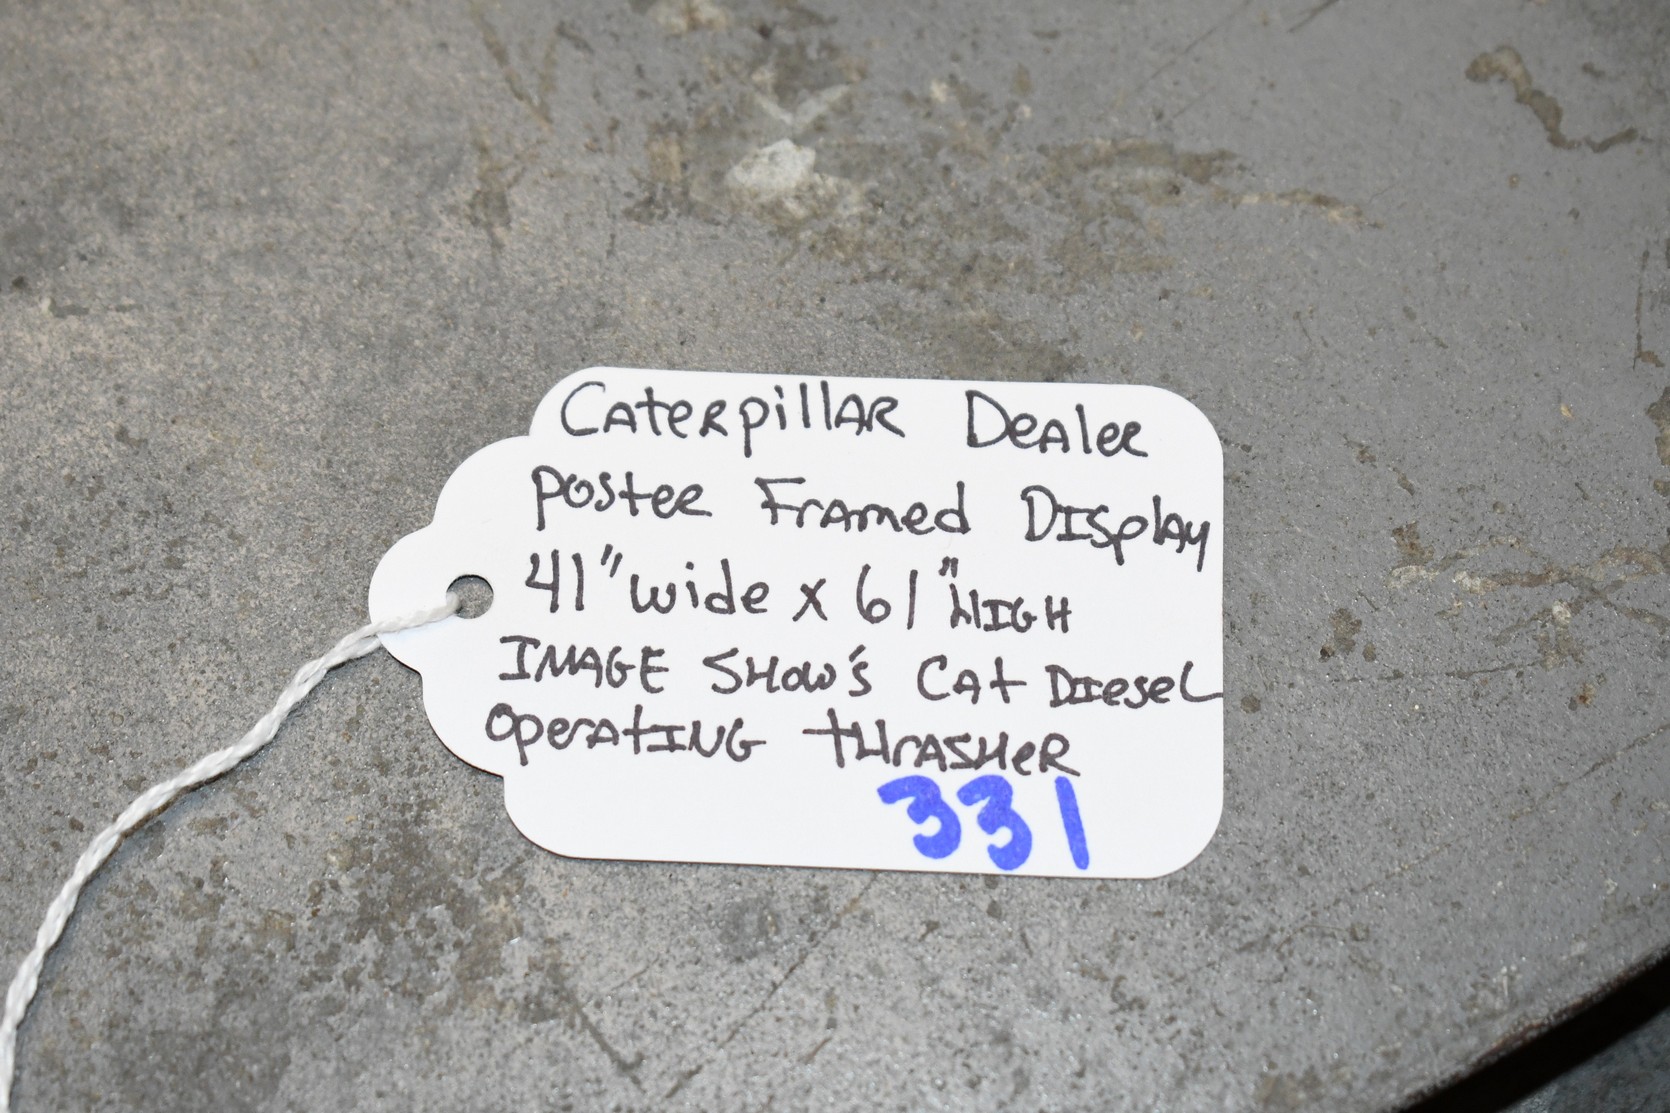 Caterpillar Dealer
Poster Framed Display
41" wide x 61" High
Image Show's Cat Diesel
Operating Thrasher
331